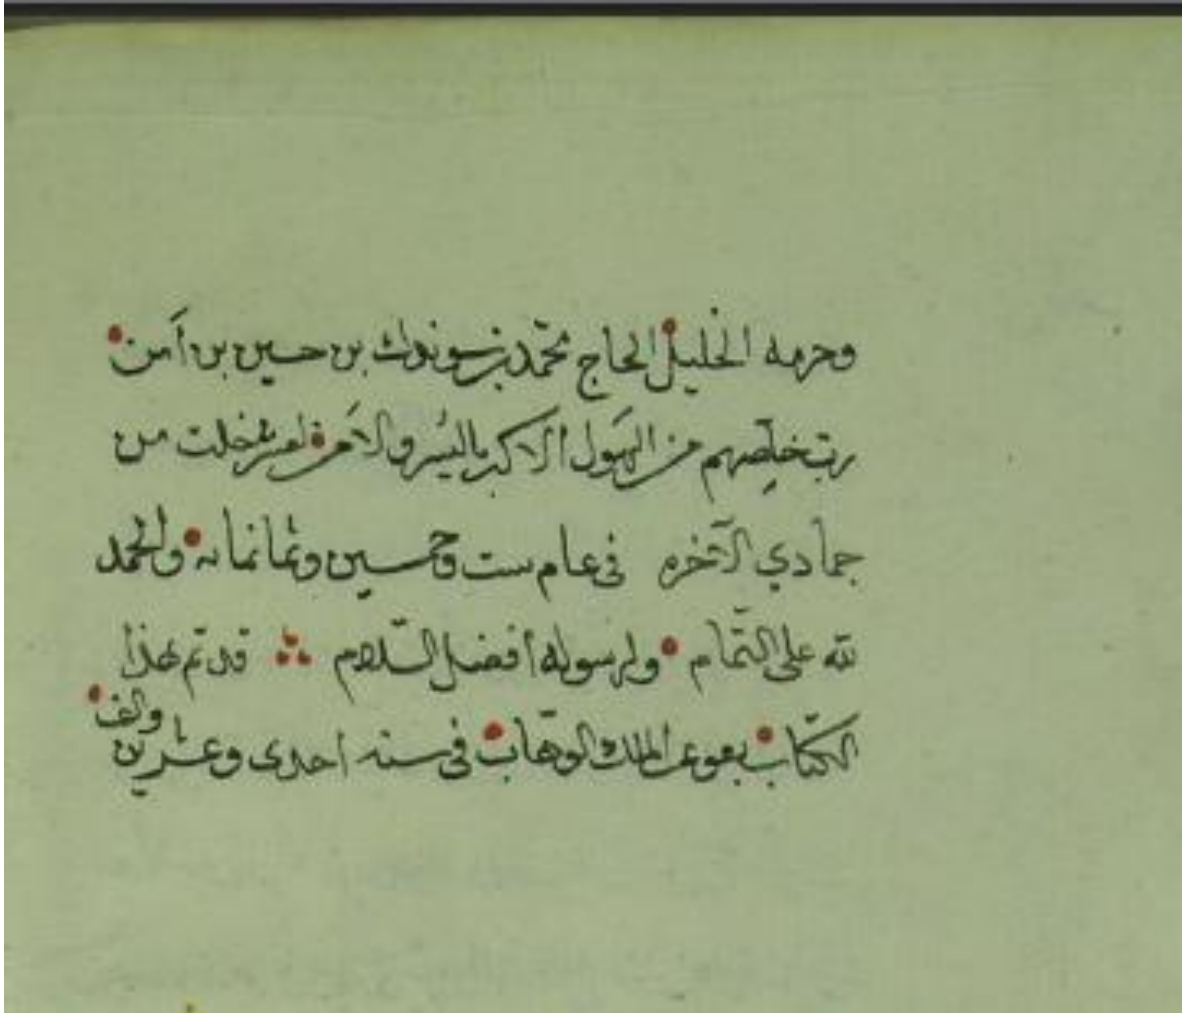 وحرمه الخليل الحاج محمّد بن سوندك بن حسين بن آمن
ربّ خلّصهم من الهَول الاكبر باليسر والامن لعشر خلت من
جمادي الآخره فى عام ست وخمسين وثمانمائه والحمد
لله على التّمام ولرسوله أفضل السّلام قد تم هذا
الكتّاب بعون الملك الوهّاب فى سنه احدى وعشرين والف